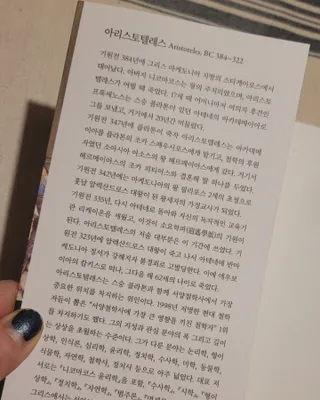 아리스토텔레스 Aristoteles, BC 384~322
기원전 384년에 그리스 마케도니아 지방의 스타케이로스에서
태어났다. 아버지 니코마코스는 왕의 주치의였으며, 아리스토
텔레스가 어릴 때 죽었다. 17세 때 어머니마저 여의자 후견인
프록세노스는 스승 플라톤이 있던 아테네의 아카데메이아로
그를 보냈고, 거기에서 20년간 머물렀다.
기원전 347년에 플라톤이 죽자 아리스토텔레스는 아카데메
이아를 플라톤의 조카 스페우시포스에게 맡기고, 철학의 후원
자였던 소아시아 아소스의 왕 헤르메이아스에게 갔다. 거기서
헤르메이아스의 조카 피티아스와 결혼해 딸 하나를 두었다.
기원전 342년에는 마케도니아의 왕 필리포스 2세의 초청으로
훗날 알렉산드로스 대왕이 된 왕세자의 가정교사가 되었다.
기원전 335년, 다시 아테네로 돌아와 자신의 독자적인 교육기
관 리케이온을 세웠고, 이것이 소요학파(逍遙學派)의 기원이
된다. 아리스토텔레스의 저술 대부분은 이 기간에 쓰였다. 기
원전 323년에 알렉산드로스 대왕이 죽고 나서 아테네에 반마
케도니아 정서가 강해지자 불경죄로 고발당한다. 이에 에우보
이아의 칼키스로 떠나, 그다음 해 62세의 나이로 죽었다.
아리스토텔레스는 스승 플라톤과 함께 서양철학사에서 가장
중요한 위치를 차지하는 위인이다. 1998년 저명한 현대 철학
자들이 뽑은 "서양철학사에 가장 큰 영향을 끼친 철학자" 1위
를 차지하기도 했다. 그의 지성과 관심 분야의 폭 그리고 깊이
는 상상을 초월하는 수준이다. 그가 다룬 분야는 논리학, 형이
상학, 인식론, 심리학, 윤리학, 정치학, 수사학, 미학, 동물학,
식물학, 자연학, 철학사, 정치사 등으로 아주 넓었다. 대표 저
서로는 『니코마코스 윤리학』을 포함, 『수사학』, 『시학』, 『형이
상학』, 『정치학』, 『자연학』, 『범주론』,
그리스에서는